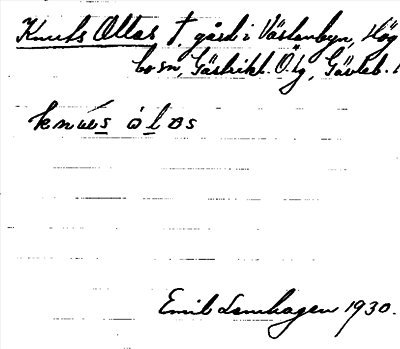 Knuts Olles †, gård i Västanbyn, Hög
bo sn, Gästrikl. Ö. tg, Gävleb. l
knu̇ts ȯlos
Emil Lenhagen 1930.